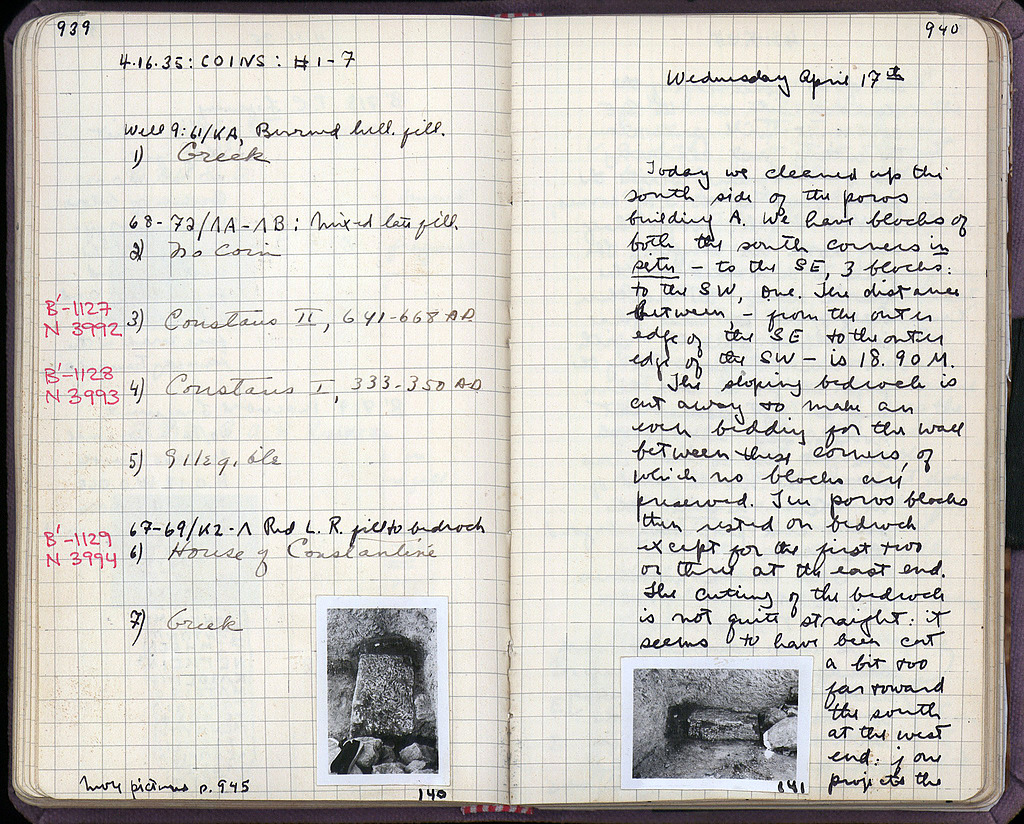 939
4.16.35: COINS: #1-7
Well 9: 61/KA, Burned hell. fill.
1) Greek
68-72/ΛA-ΛB: Mixed late fill
2) No coin
B'-1127
N 3992
3) Constans II, 641-668 AD
B'-1128
N 3993
4) Constans I, 333-350 AD
5) Illegible
67-69/KZ-Λ Red L. R. fill to bedrock
B'-1129
N 3994
6) House of Constantine
7) Greek
More pictures p. 945
140
940
Wednesday April 17th
Today we cleaned up the
south side of the poros
building A. We have blocks of
both the south corners in
situ – to the SE, 3 blocks:
to the SW, one. The distance
between, – from the outer
edge of the SE to the outer
edge of the SW – is 18.90 M.
The sloping bedrock is
cut away to make an
even bedding for the wall
between these corners, of
which no blocks are
preserved. The poros blocks
thus rested on bedrock
except for the first two
or three at the east end.
The cutting of the bedrock
is not quite straight: it
seems to have been cut
a bit too
far toward
the south
at the west
end: if one
projects the
141